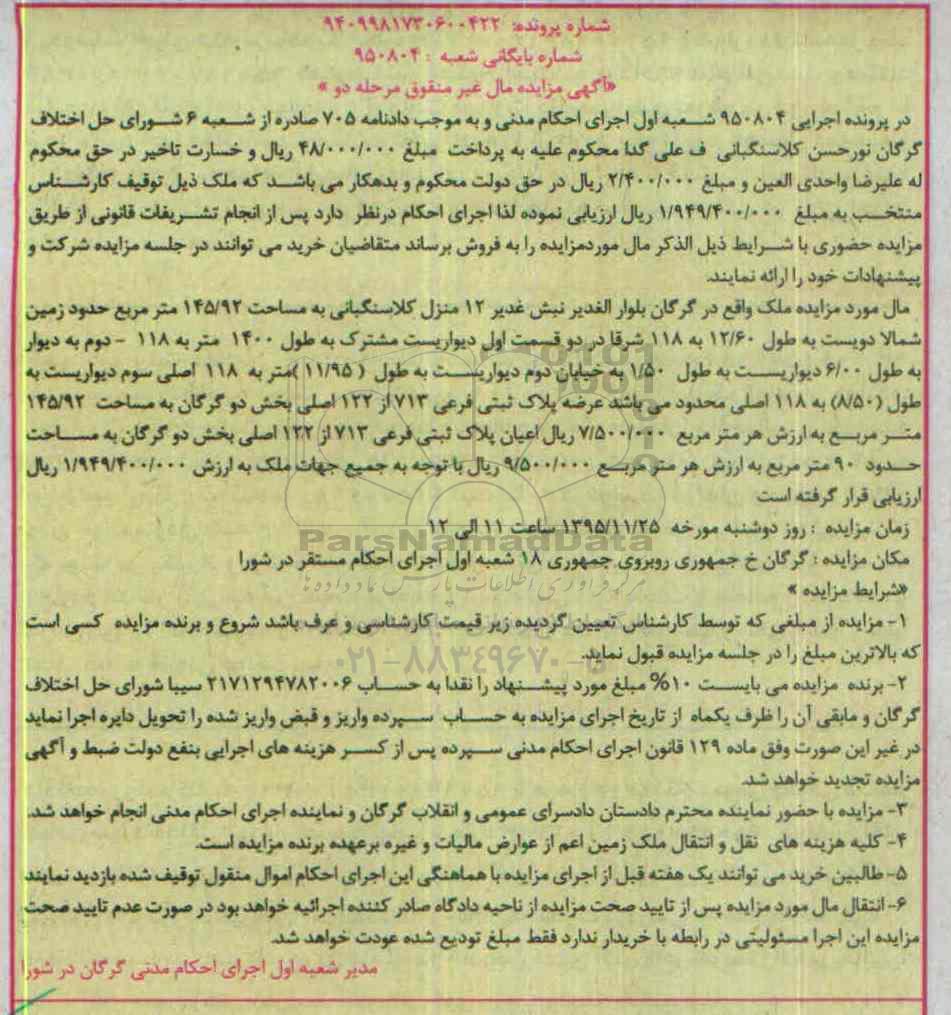 شماره پرونده: ۹۴۰۹۹۸۱۷۳۰۶۰۰۴۲۲
شماره بایگانی شعبه : ۹۵۰۸۰۴
«آگهی مزایده مال غیر منقوق مرحله دو »
در پرونده اجرایی ۹۵۰۸۰۴ شعبه اول اجرای احکام مدنی و به موجب دادنامه ۷۰۵ صادره از شعبه ۶ شورای حل اختلاف
گرگان نورحسن کلاسنگیانی ف علی گدا محکوم علیه به پرداخت مبلغ ۴۸/۰۰۰/۰۰۰ ریال و خسارت تاخیر در حق محکوم
له علیرضا واحدی العین و مبلغ ۲/۴۰۰/۰۰۰ ریال در حق دولت محکوم و بدهکار می باشد که ملک ذیل توقیف کارشناس
منتخب به مبلغ ۱/۹۴۹/۴۰۰/۰۰۰ ریال ارزیابی نموده لذا اجرای احکام درنظر دارد پس از انجام تشریفات قانونی از طریق
مزایده حضوری با شرایط ذیل الذکر مال موردمزایده را به فروش برساند متقاضیان خرید می توانند در جلسه مزایده شرکت و
پیشنهادات خود را ارائه نمایند.
مال مورد مزایده ملک واقع در گرگان بلوار الغدیر نبش غدیر ۱۲ منزل کلاسنگیانی به مساحت ۱۴۵/۹۲ متر مربع حدود زمین
شمالا دویست به طول ۱۲/۶۰ به ۱۱۸ شرقا در دو قسمت اول دیواریست مشترک به طول ۱۴۰۰ متر به ۱۱۸ - دوم به دیوار
به طول ۶/۰۰ دیواریست به طول ۱/۵۰ به خیابان دوم دیواریست به طول (۱۱/۹۵ )متر به ۱۱۸ اصلی سوم دیواریست به
طول (۸/۵۰) به ۱۱۸ اصلی محدود می باشد عرضه پلاک ثبتی فرعی ۷۱۳ از ۱۲۲ اصلی بخش دو گرگان به مساحت ۱۴۵/۹۲
متر مربع به ارزش هر متر مربع ۷/۵۰۰/۰۰۰ ریال اعیان پلاک ثبتی فرعی ۷۱۳ از ۱۲۲ اصلی بخش دو گرگان به مساحت
حدود ۹۰ متر مربع به ارزش هر متر مربع ۹/۵۰۰/۰۰۰ ریال با توجه به جمیع جهات ملک به ارزش ۱/۹۴۹/۴۰۰/۰۰۰ ریال
ارزیابی قرار گرفته است
زمان مزایده : روز دوشنبه مورخه ۱۳۹۵/۱۱/۲۵ ساعت ۱۱ الی ۱۲
ParsNamadData
مکان مزایده : گرگان خ جمهوری روبروی جمهوری ۱۸ شعبه اول اجرای احکام مستقر در شورا
مرکز فرآوری اطلاعات پارس نماد داده ها
«شرایط مزایده »
۱- مزایده از مبلغی که توسط کارشناس تعیین گردیده زیر قیمت کارشناسی و عرف باشد شروع و برنده مزایده کسی است
که بالاترین مبلغ را در جلسه مزایده قبول نماید.
۰۲۱-۸۸۳۴۹۶۷۰-۵
۲- برنده مزایده می بایست ۱۰% مبلغ مورد پیشنهاد را نقدا به حساب ۲۱۷۱۲۹۴۷۸۲۰۰۶ سیبا شورای حل اختلاف
گرگان و مابقی آن را ظرف یکماه از تاریخ اجرای مزایده به حساب سپرده واریز و قبض واریز شده را تحویل دایره اجرا نماید
در غیر این صورت وفق ماده ۱۲۹ قانون اجرای احکام مدنی سپرده پس از کسر هزینه های اجرایی بنفع دولت ضبط و آگهی
مزایده تجدید خواهد شد.
۳- مزایده با حضور نماینده محترم دادستان دادسرای عمومی و انقلاب گرگان و نماینده اجرای احکام مدنی انجام خواهد شد.
۴- کلیه هزینه های نقل و انتقال ملک زمین اعم از عوارض مالیات و غیره برعهده برنده مزایده است.
۵- طالبین خرید می توانند یک هفته قبل از اجرای مزایده با هماهنگی این اجرای احکام اموال منقول توقیف شده بازدید نمایند
۶- انتقال مال مورد مزایده پس از تایید صحت مزایده از ناحیه دادگاه صادر کننده اجرائیه خواهد بود در صورت عدم تایید صحت
مزایده این اجرا مسئولیتی در رابطه با خریدار ندارد فقط مبلغ تودیع شده عودت خواهد شد.
مدیر شعبه اول اجرای احکام مدنی گرگان در شورا